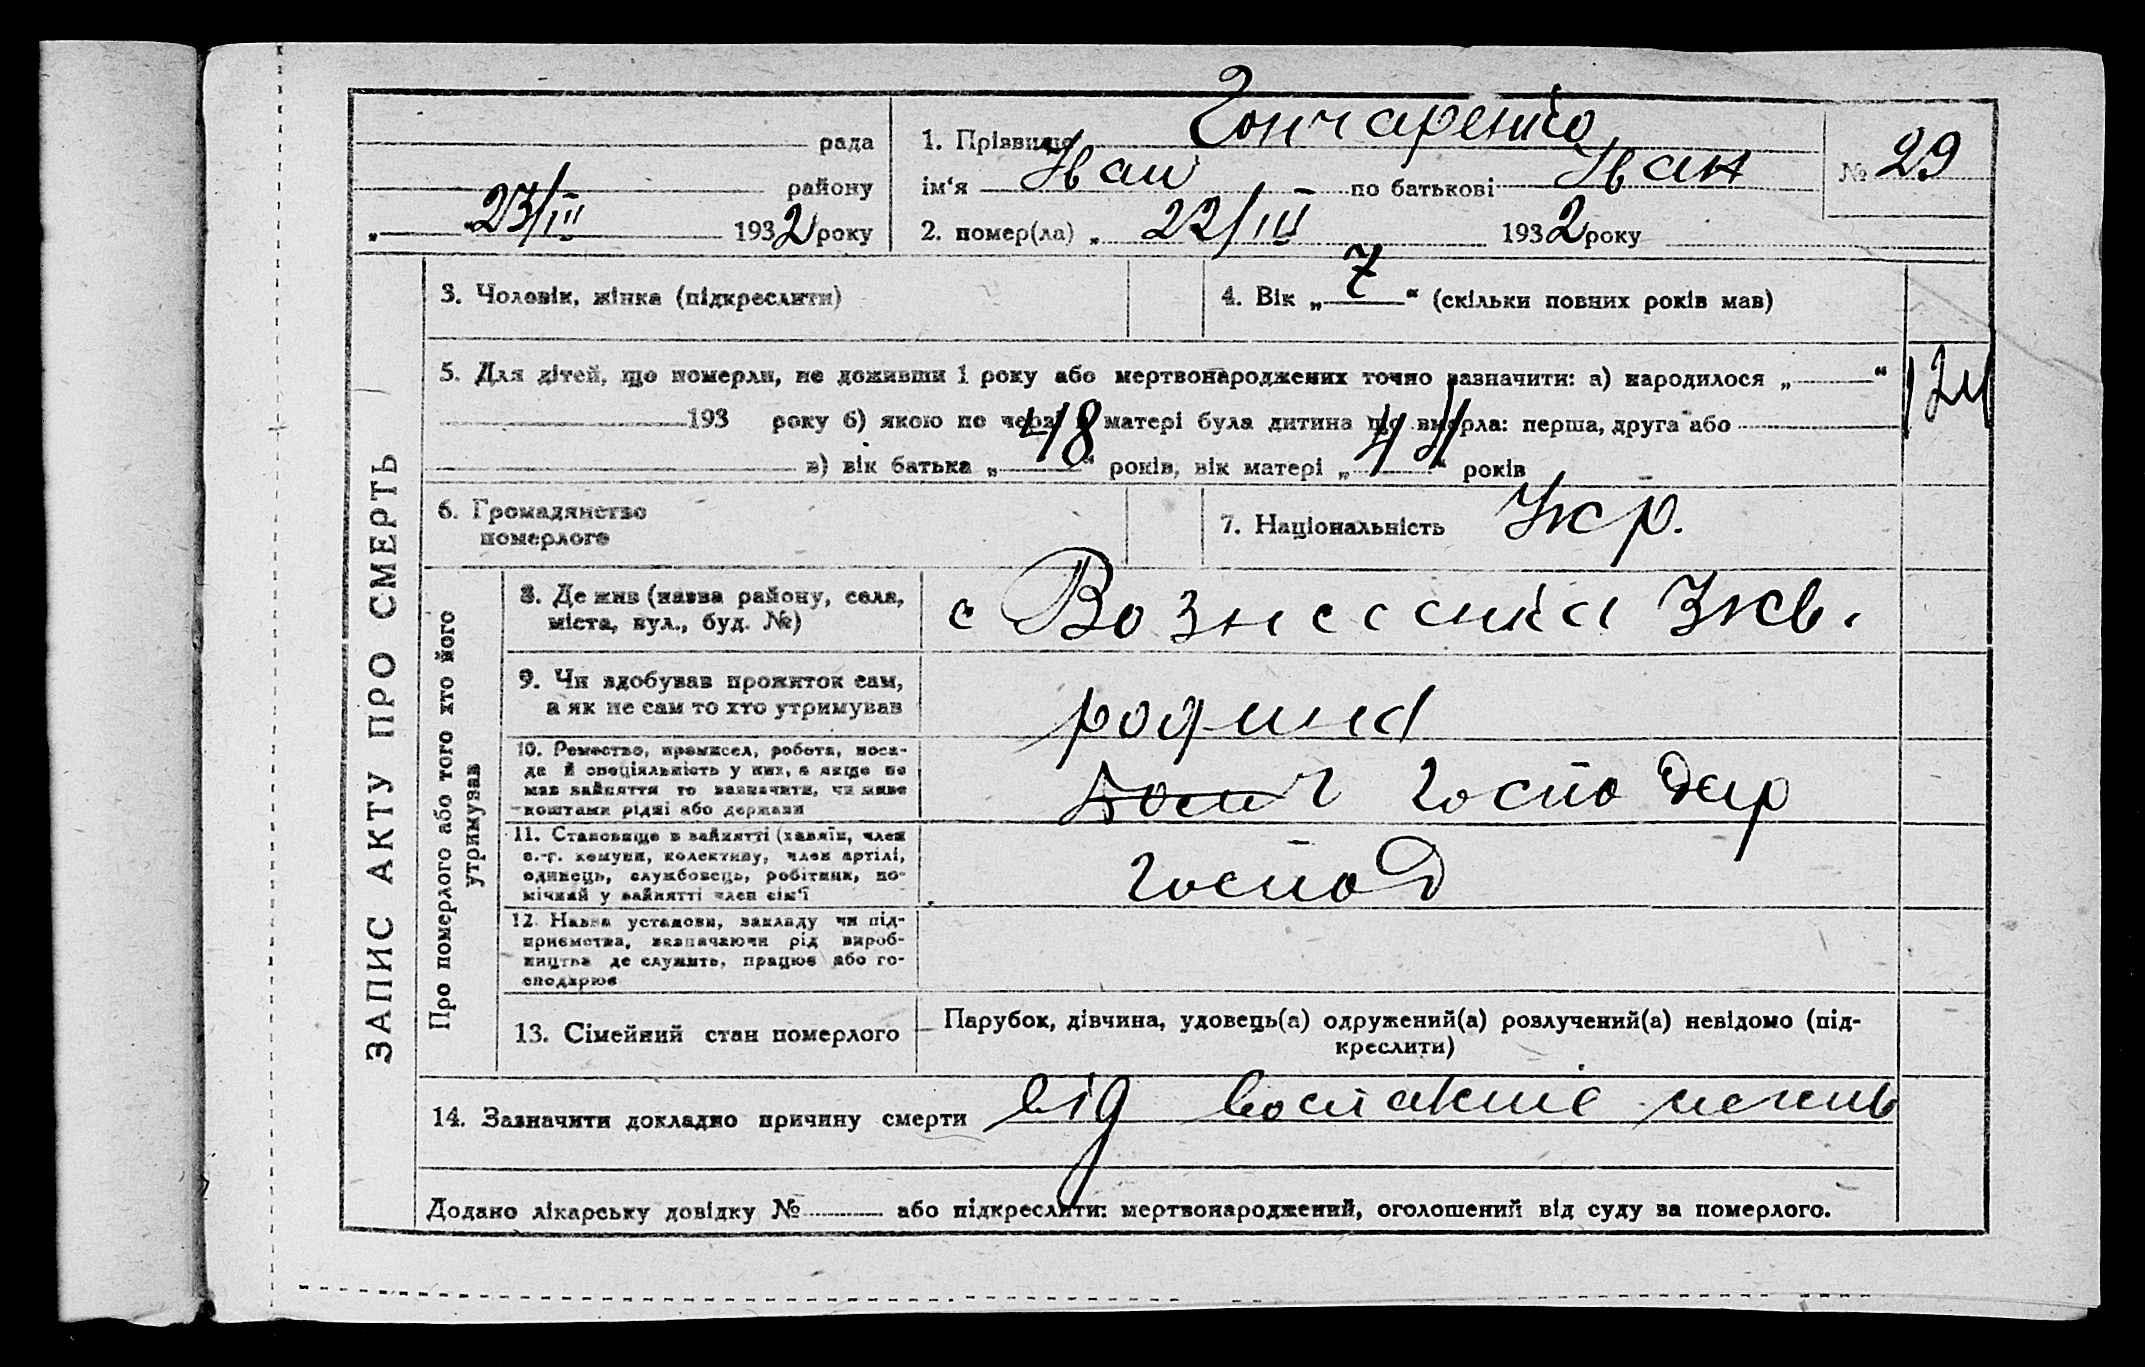 рада
району
„ 23/III 1932 року
1. Прізвище Гончаренко
ім‘я Иван по батькові Иван
2. помер(ла) „ 22/III 1932 року
№ 29
ЗАПИС АКТУ ПРО СМЕРТЬ
3. Чоловік, жінка (підкреслити)
4. Вік „ 7 “ (скільки повних років мав)
5. Для дітей, що померли, не доживши 1 року або мертвонароджених точно зазначити: а) народилося „ “
193 року б) якою по черзі у матері була дитина що вмерла: перша, друга або
в) вік батька „ 48 “ років, вік матері „ 44 “ років
124
6. Громадянство
померлого
7. Національність Укр.
Про померлого або того хто його
утримував
8. Де жив (назва району, села,
міста, вул., буд. №)
с Вознесенка
9. Чи здобував прожиток сам,
а як не сам то хто утримував
родина
10. Ремество, промисел, робота, поса-
да й спеціяльність у них, а якщо не
мав зайняття то зазначити, чи живе
коштами рідні або держави
господар
11. Становище в зайнятті (хазяїн, член
с.-г. комуни, колективу, член артілі,
одинець, службовець, робітник, по-
мічний у зайнятті член сім‘ї
господ
12. Назва установи, закладу чи під-
приємства, зазначаючи рід вироб-
ництва де служить, працює або го-
сподарює
13. Сімейний стан померлого
Парубок, дівчина, удовець(а) одружений(а) розлучений(а) невідомо (під-
креслити)
14. Зазначити докладно причину смерти від воспаление печень
Додано лікарську довідку № або підкреслити: мертвонароджений, оголошений від суду за померлого.